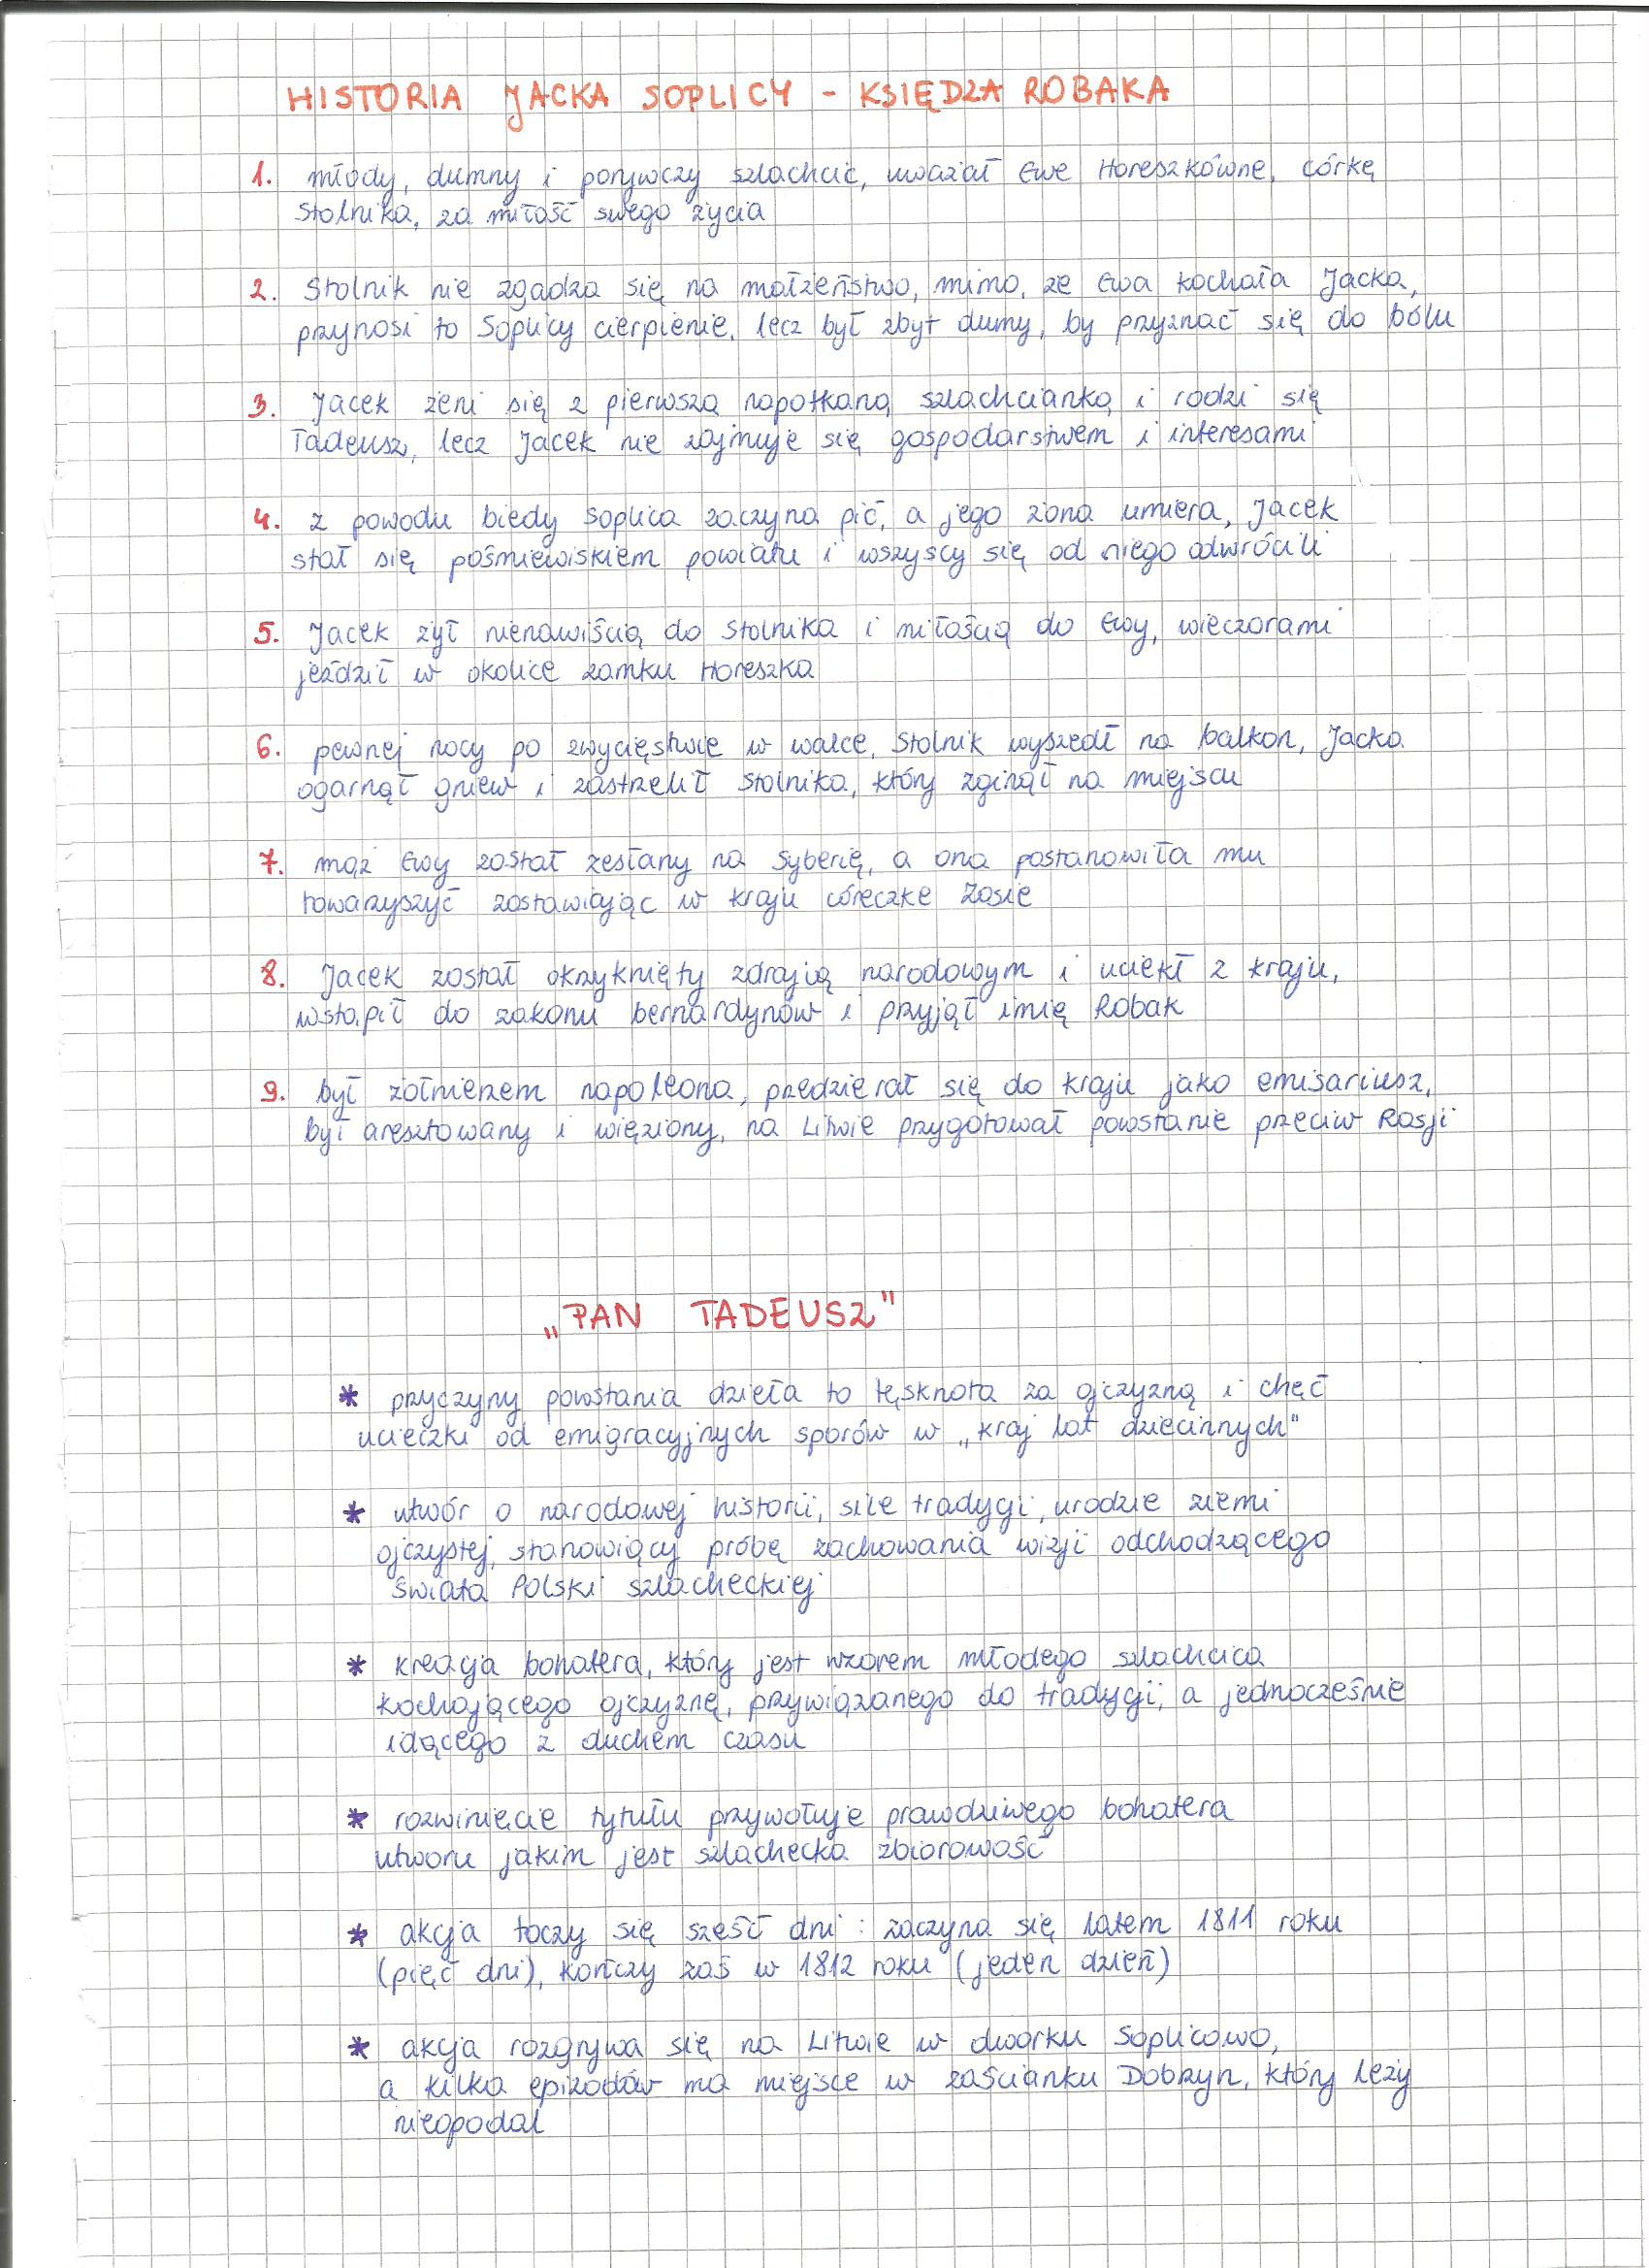 HISTORIA JACKA SOPLICY - KSIĘDZA ROBAKA
1. młody, dumny i porywczy szlachcic, uważał Ewę Horeszkównę, córkę
Stolnika, za miłość swego życia
2. Stolnik nie zgadza się na małżeństwo, mimo, że Ewa kochała Jacka,
przynosi to Soplicy cierpienie, lecz był zbyt dumy, by przyznać się do bólu
3. Jacek żeni się z pierwszą napotkaną szlachcianką i rodzi się
Tadeusz, lecz Jacek nie zajmuje się gospodarstwem i interesami
4. z powodu biedy Soplica zaczyna pić, a jego żona umiera, Jacek
stał się pośmiewiskiem powiatu i wszyscy się od niego odwrócili
5. Jacek żył nienawiścią do Stolnika i miłością do Ewy, wieczorami
jeździł w okolice zamku Horeszka
6. pewnej nocy po zwycięstwie w walce, Stolnik wyszedł na balkon, Jacka
ogarnął gniew i zastrzelił Stolnika, który zginął na miejscu
7. mąż Ewy został zesłany na Syberię, a ona postanowiła mu
towarzyszyć zostawiając w kraju córeczkę Zosię
8. Jacek został okrzyknięty zdrajcą narodowym i uciekł z kraju,
wstąpił do zakonu bernardynów i przyjął imię Robak
9. był żołnierzem napoleona, przedzierał się do kraju jako emisariusz,
był aresztowany i więziony, na Litwie przygotował powstanie przeciw Rosji
„PAN TADEUSZ"
* przyczyny powstania dzieła to tęsknota za ojczyzną i chęć
ucieczki od emigracyjnych sporów w „kraj lat dziecinnych"
* utwór o narodowej historii, sile tradycji, urodzie ziemi
ojczystej, stanowiący próbę zachowania wizji odchodzącego
świata Polski szlacheckiej
* kreacja bohatera, który jest wzorem młodego szlachcica
kochającego ojczyznę, przywiązanego do tradycji, a jednocześnie
idącego z duchem czasu
* rozwinięcie tytułu przywołuje prawdziwego bohatera
utworu jakim jest szlachecka zbiorowość
* akcja toczy się sześć dni: zaczyna się latem 1811 roku
(pięć dni), kończy zaś w 1812 roku (jeden dzień)
* akcja rozgrywa się na Litwie w dworku Soplicowo,
a kilka epizodów ma miejsce w zaścianku Dobrzyn, który leży
nieopodal